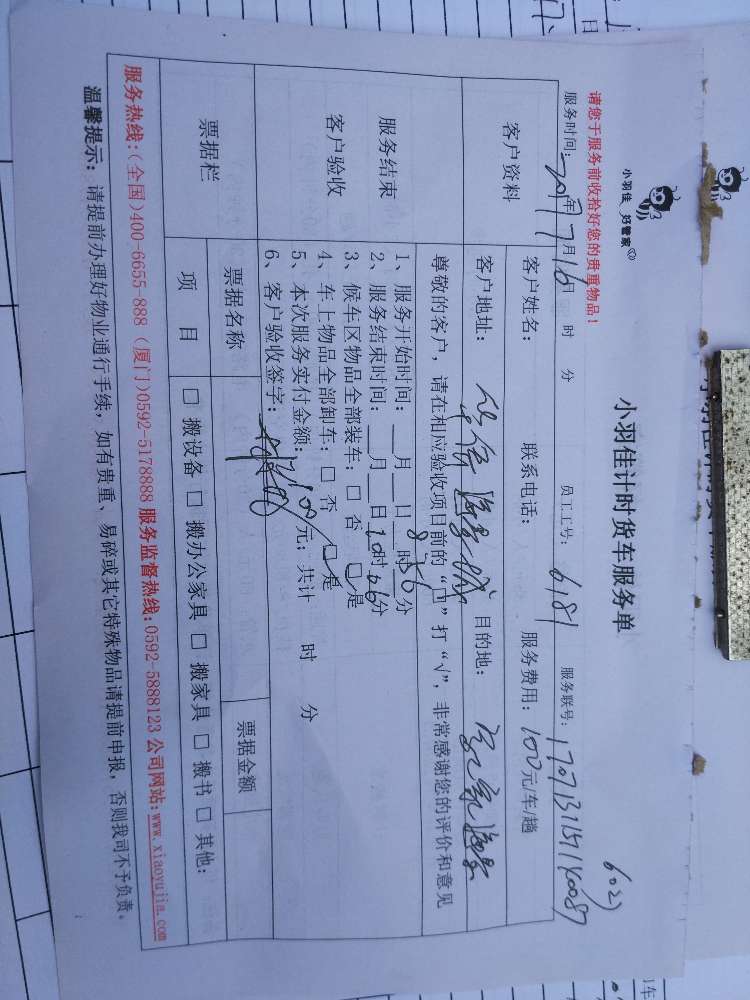 小羽佳 好管家
小羽佳计时货车服务单
请您于服务前收拾好您的贵重物品！
服务时间：2017年7月16日 时 分 员工工号：6181 服务联号：
客户资料 客户姓名： 联系电话： 服务费用：100元/车/趟
客户地址： 目的地：
尊敬的客户，请在相应验收项目前的“口”打“√”，非常感谢您的评价和意见
服务结束
客户验收
1、服务开始时间：__月__日__时56分
2、服务结束时间：__月__日10时06分
3、候车区物品全部装车：□ 否 □ 是
4、车上物品全部卸车：□ 否 □ 是
5、本次服务实付金额：100元；共计 时 分
6、客户验收签字：
票据栏 票据名称 票据金额
项 目 □ 搬设备 □ 搬办公家具 □ 搬家具 □ 搬书 □ 其他：
服务热线：(全国)400-6655-888 (厦门)0592-5178888 服务监督热线：0592-5888123 公司网站：www.xiaoyujia.com
温馨提示：请提前办理好物业通行手续，如有贵重、易碎或其它特殊物品请提前申报，否则我司不予负责。